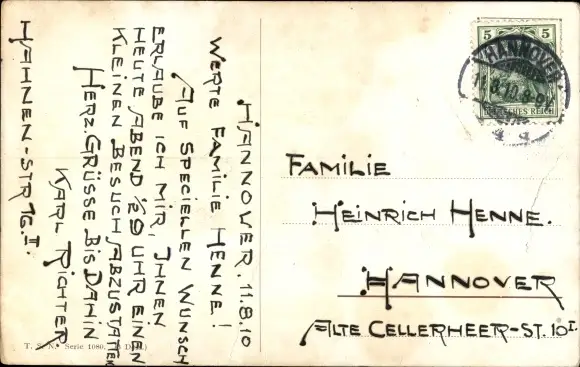 HANNOVER, 11.8.10
WERTE FAMILIE HENNE!
AUF SPECIELLEN WUNSCH
ERLAUBE ICH MIR, IHNEN
HEUTE ABEND ½9 UHR EINEN
KLEINEN BESUCH ABZUSTATTEN
HERZ. GRÜSSE BIS DAHIN
KARL RICHTER
HAHNEN-STR 16.I.
T. S. N. Serie 1080.
5 5
HANNOVER
11.8.10.8-9V.
DEUTSCHES REICH
FAMILIE
HEINRICH HENNE.
HANNOVER
ALTE CELLERHEER-ST. 10I.